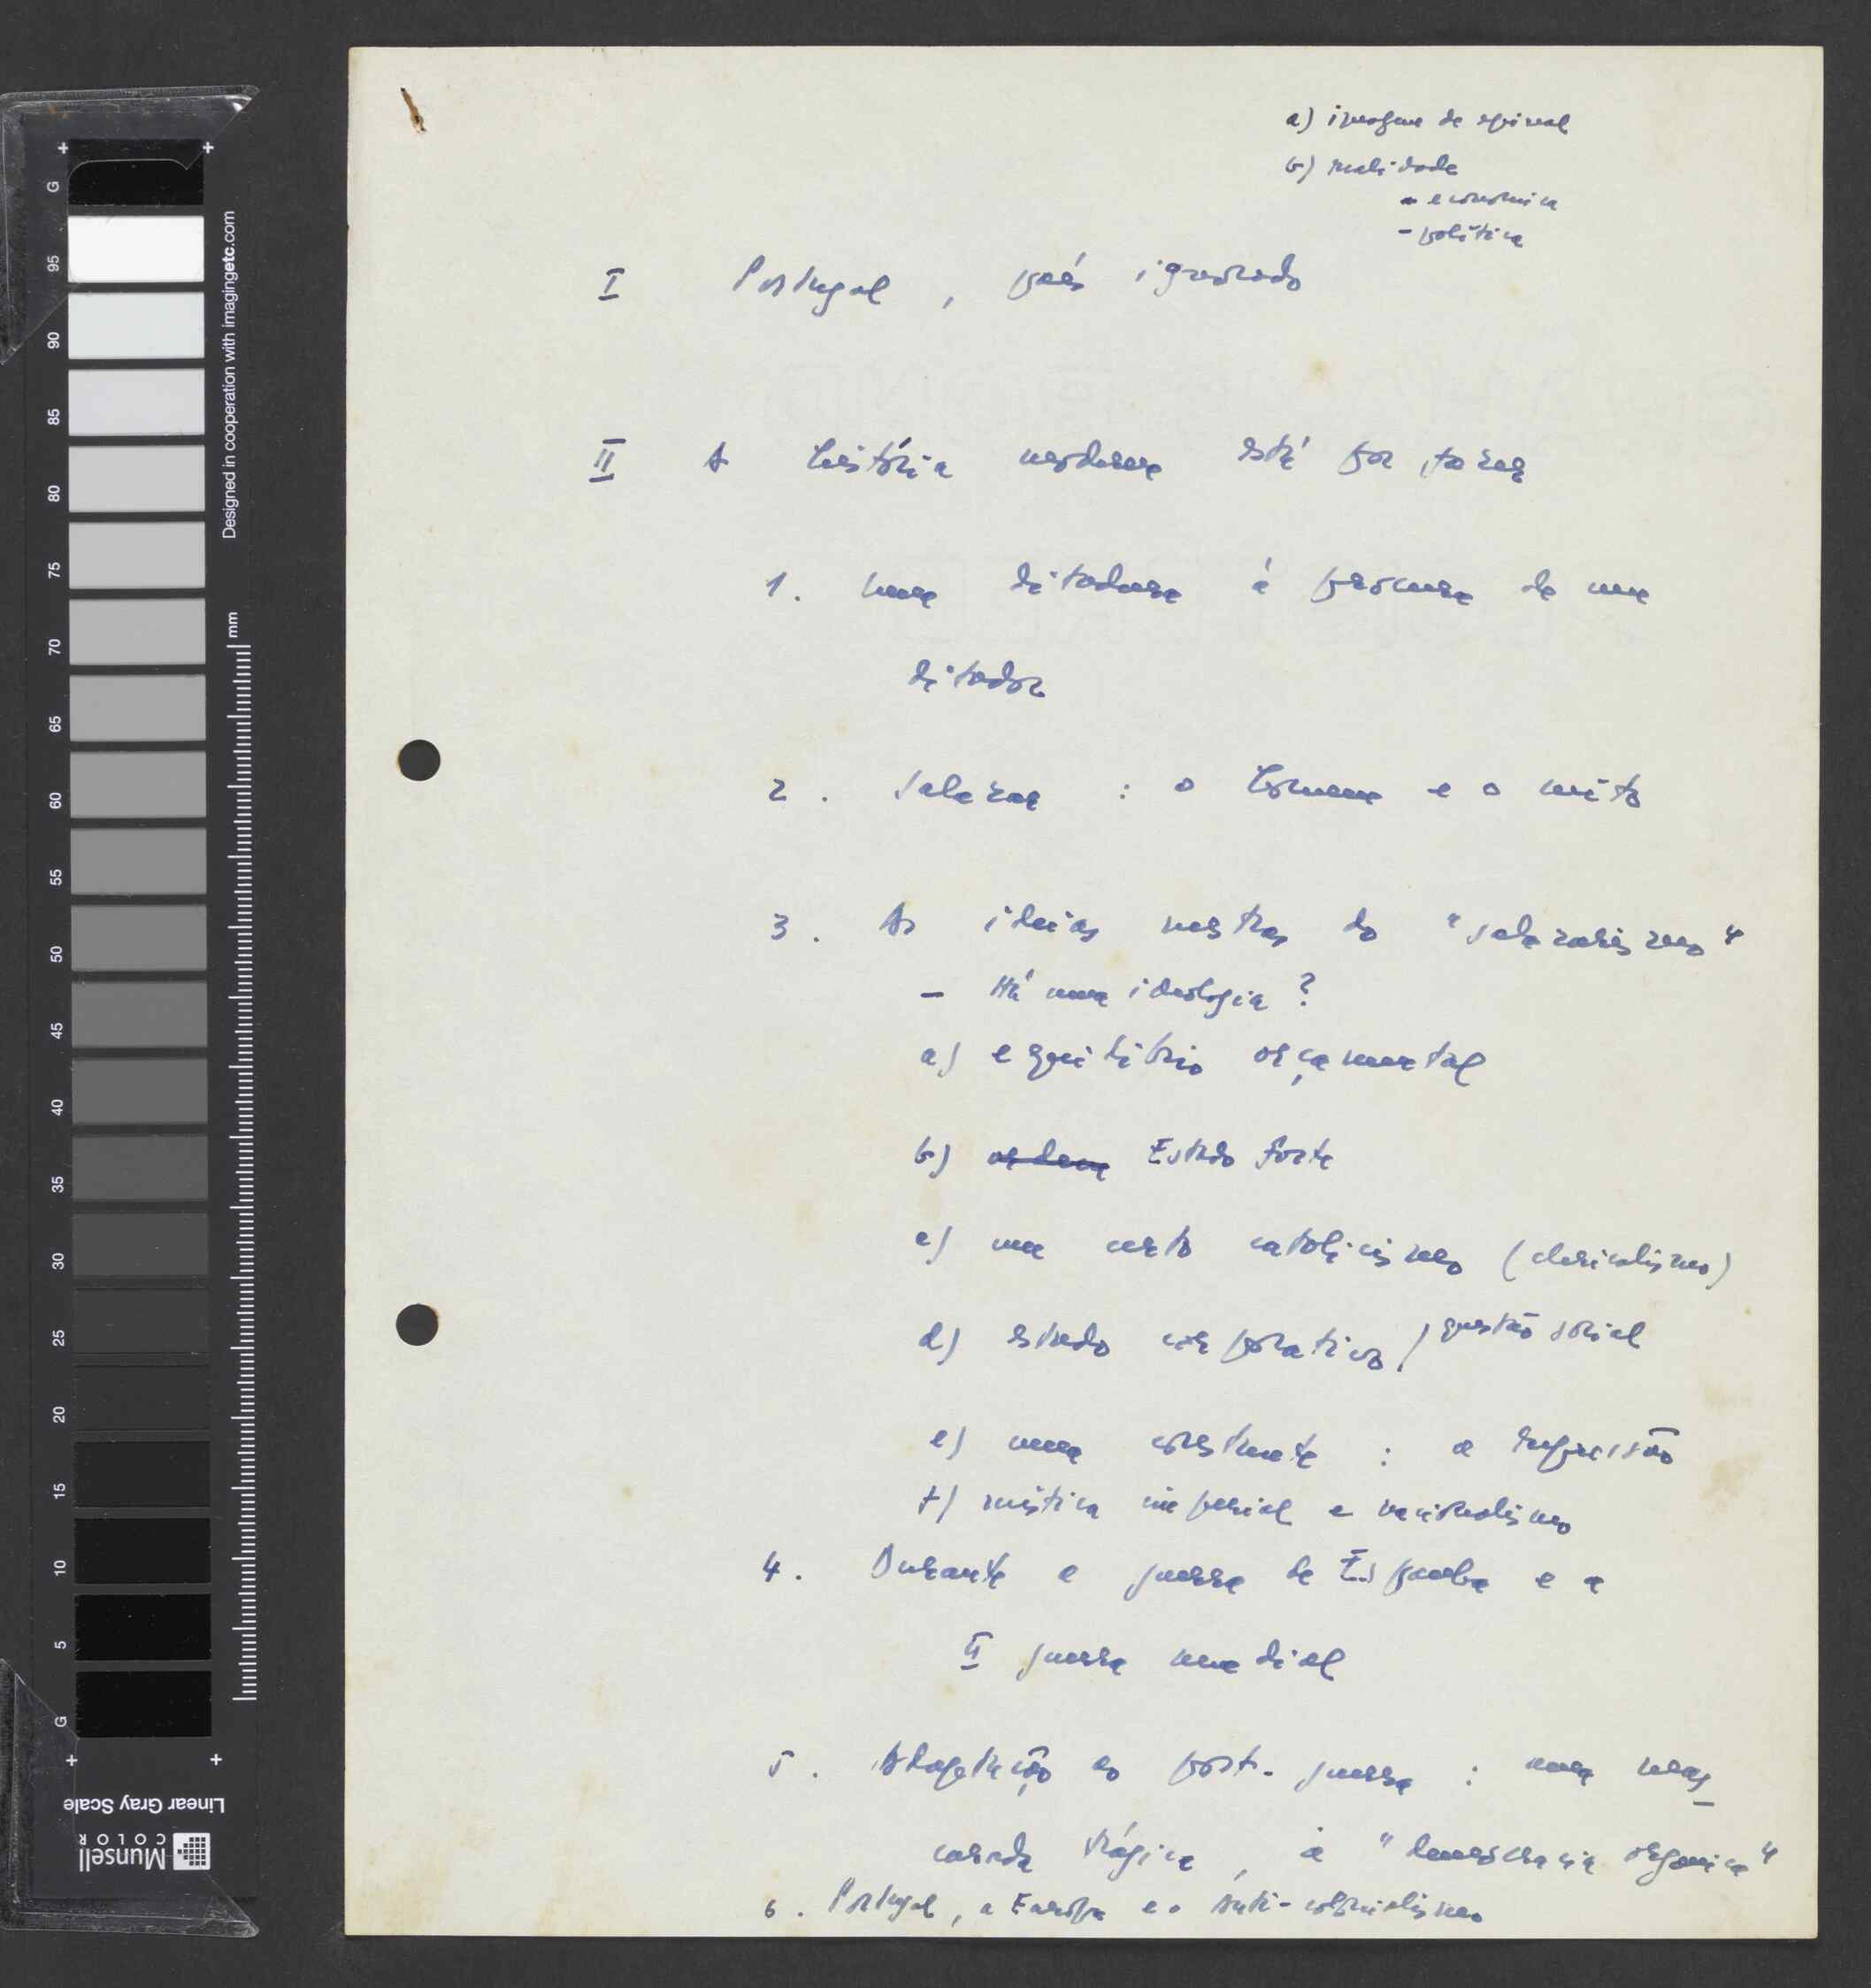 a) imagem de
b) realidade
- economica
- política
I Portugal, país ignorado
II A história moderna está por fazer
1. Uma ditadura à procura de um
ditador
2. Salazar : o homem e o mito
3. As ideias mestras do "salazarismo"
- Há uma ideologia ?
a) equilibrio orçamental
b) ordem Estado forte
c) um certo catolicismo (clericalismo)
d) estado corporativo / questão social
e) uma constante : a repressão
f) mística imperial e nacionalismo
4. Durante a guerra de Espanha e a
II guerra mundial
5. Adaptação ao post-guerra : uma mas
carada trágica, a "democracia organica"
6. Portugal, a Europa e o Anti-colonialismo
G
95
90
85
80
75
70
65
60
55
50
45
40
35
30
25
20
15
10
5
G
mm
Designed in cooperation with imagingetc.com
Linear Gray Scale
Munsell
COLOR